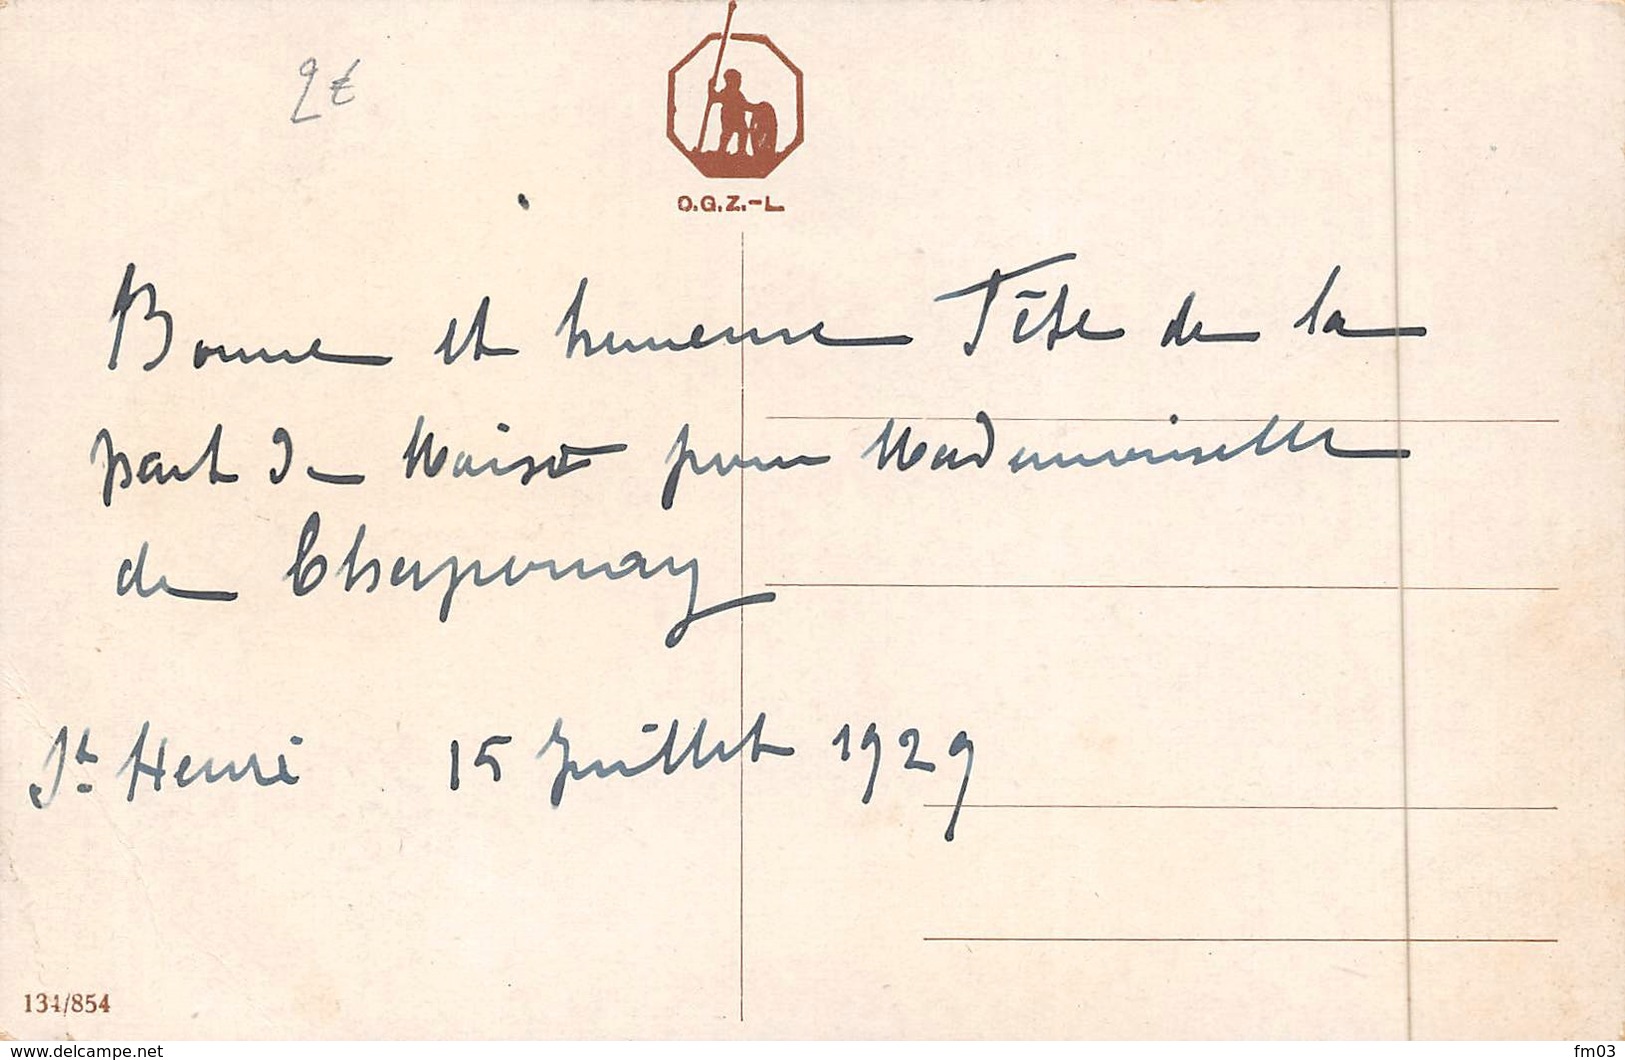 2€
O.G.Z.-L
Bonne et heureuse Fête de la
part de pour Mademoiselle
de Chaponay
St Henri 15 Juillet 1929
134/854
www.delcampe.net
fm03